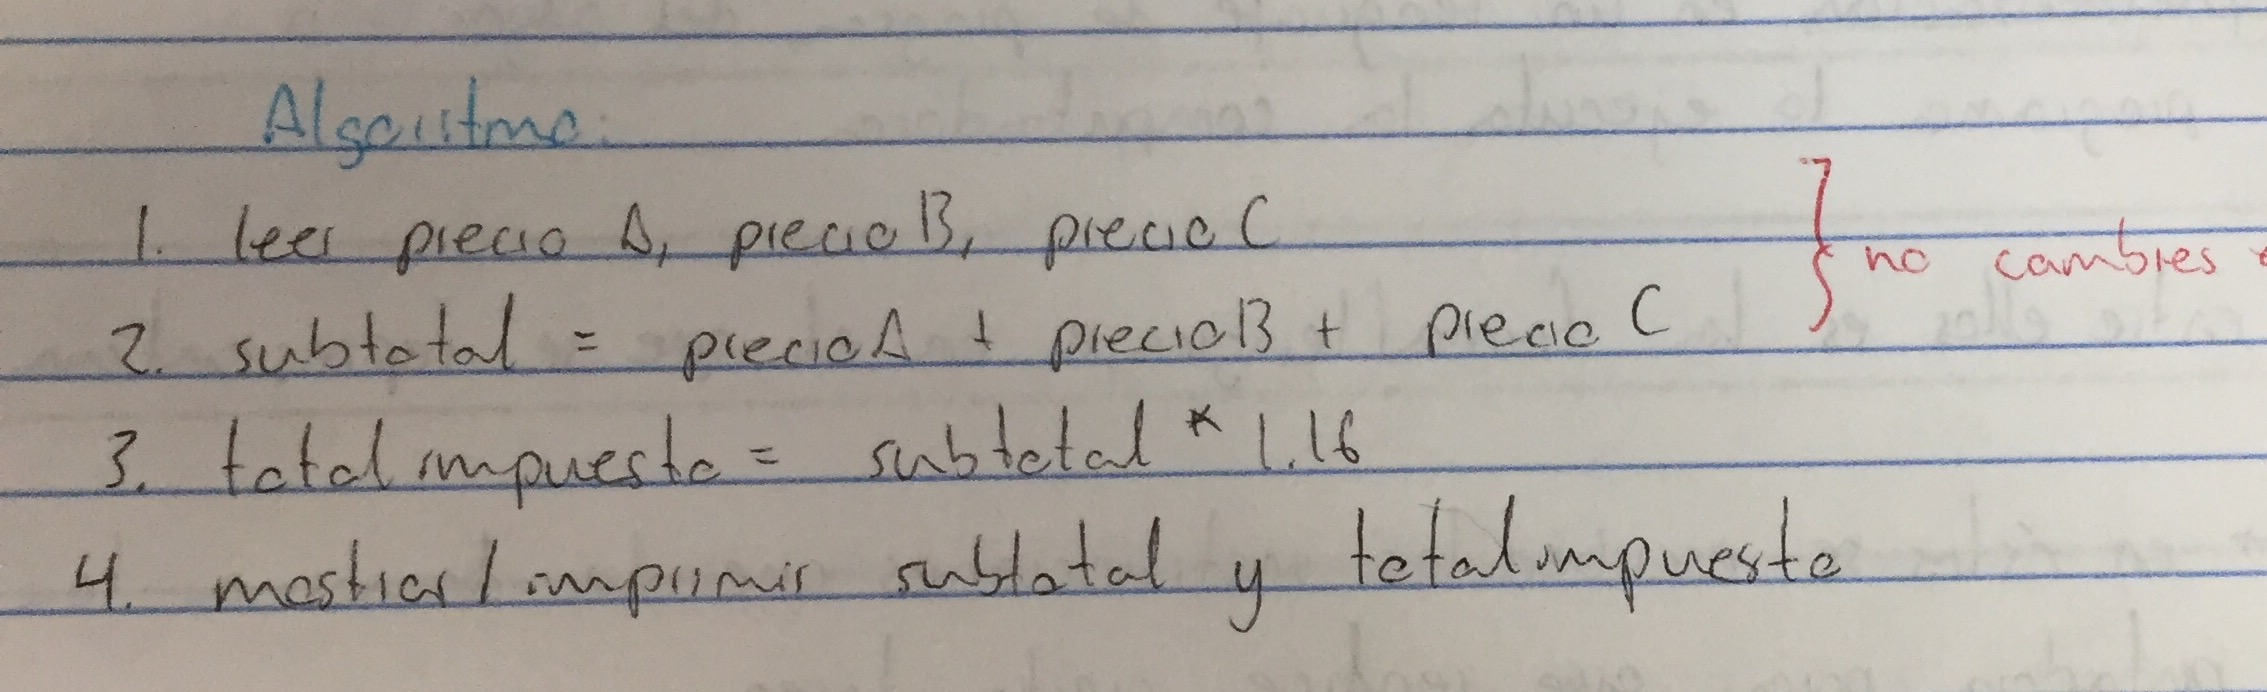 Algoritmo:
1. leer precio A, precio B, precio C
} no cambies
2. subtotal = precioA + precioB + precio C
3. total impuesto = subtotal * 1.16
4. mostrar / imprimir subtotal y totalimpuesto